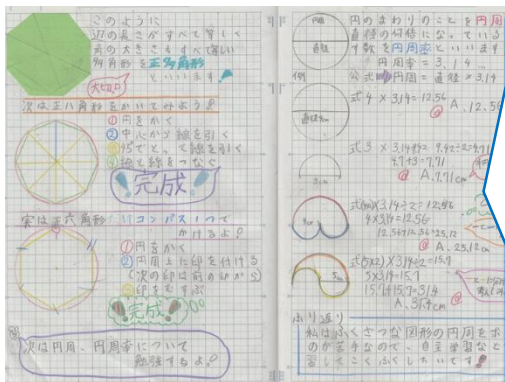 このように
辺の長さがすべて等しく
角の大きさもすべて等しい
多角形を正多角形
といいます!
大切!!
次は正八角形をかいてみよう!
①円をかく
②中心から線を引く
③45°でとって線を引く
④線と線をつなぐ
完成!
実は正六角形はコンパス1つで
かけるよ!
①円をかく
②円周上に印を付ける
(次の印は前の印から)
③印をむすぶ
完成!
次は円周、円周率について
勉強するよ!
円周
直径
円のまわりのことを円周
直径の何倍になっている
す数を円周率といいます
円周率=3.14...
例
公式➡円周=直径×3.14
直径4cm
式4×3.14=12.56
A.12.56
式3×3.14=9.42÷2=4.71
4.71+3=7.71
A.7.71cm
3cm
式(4×2)×3.14÷2=12.56
4×3.14=12.56
12.56+12.56=25.12
A.25.12cm
4cm
式(5×2)×3.14÷2=15.7
5×3.14=15.7
15.7+15.7=31.4
A.31.4cm
5cm
ふり返り
私はふくざつな図形の円周をボ
のが苦手なので、自主学習など
習してこくふくしたいです!!